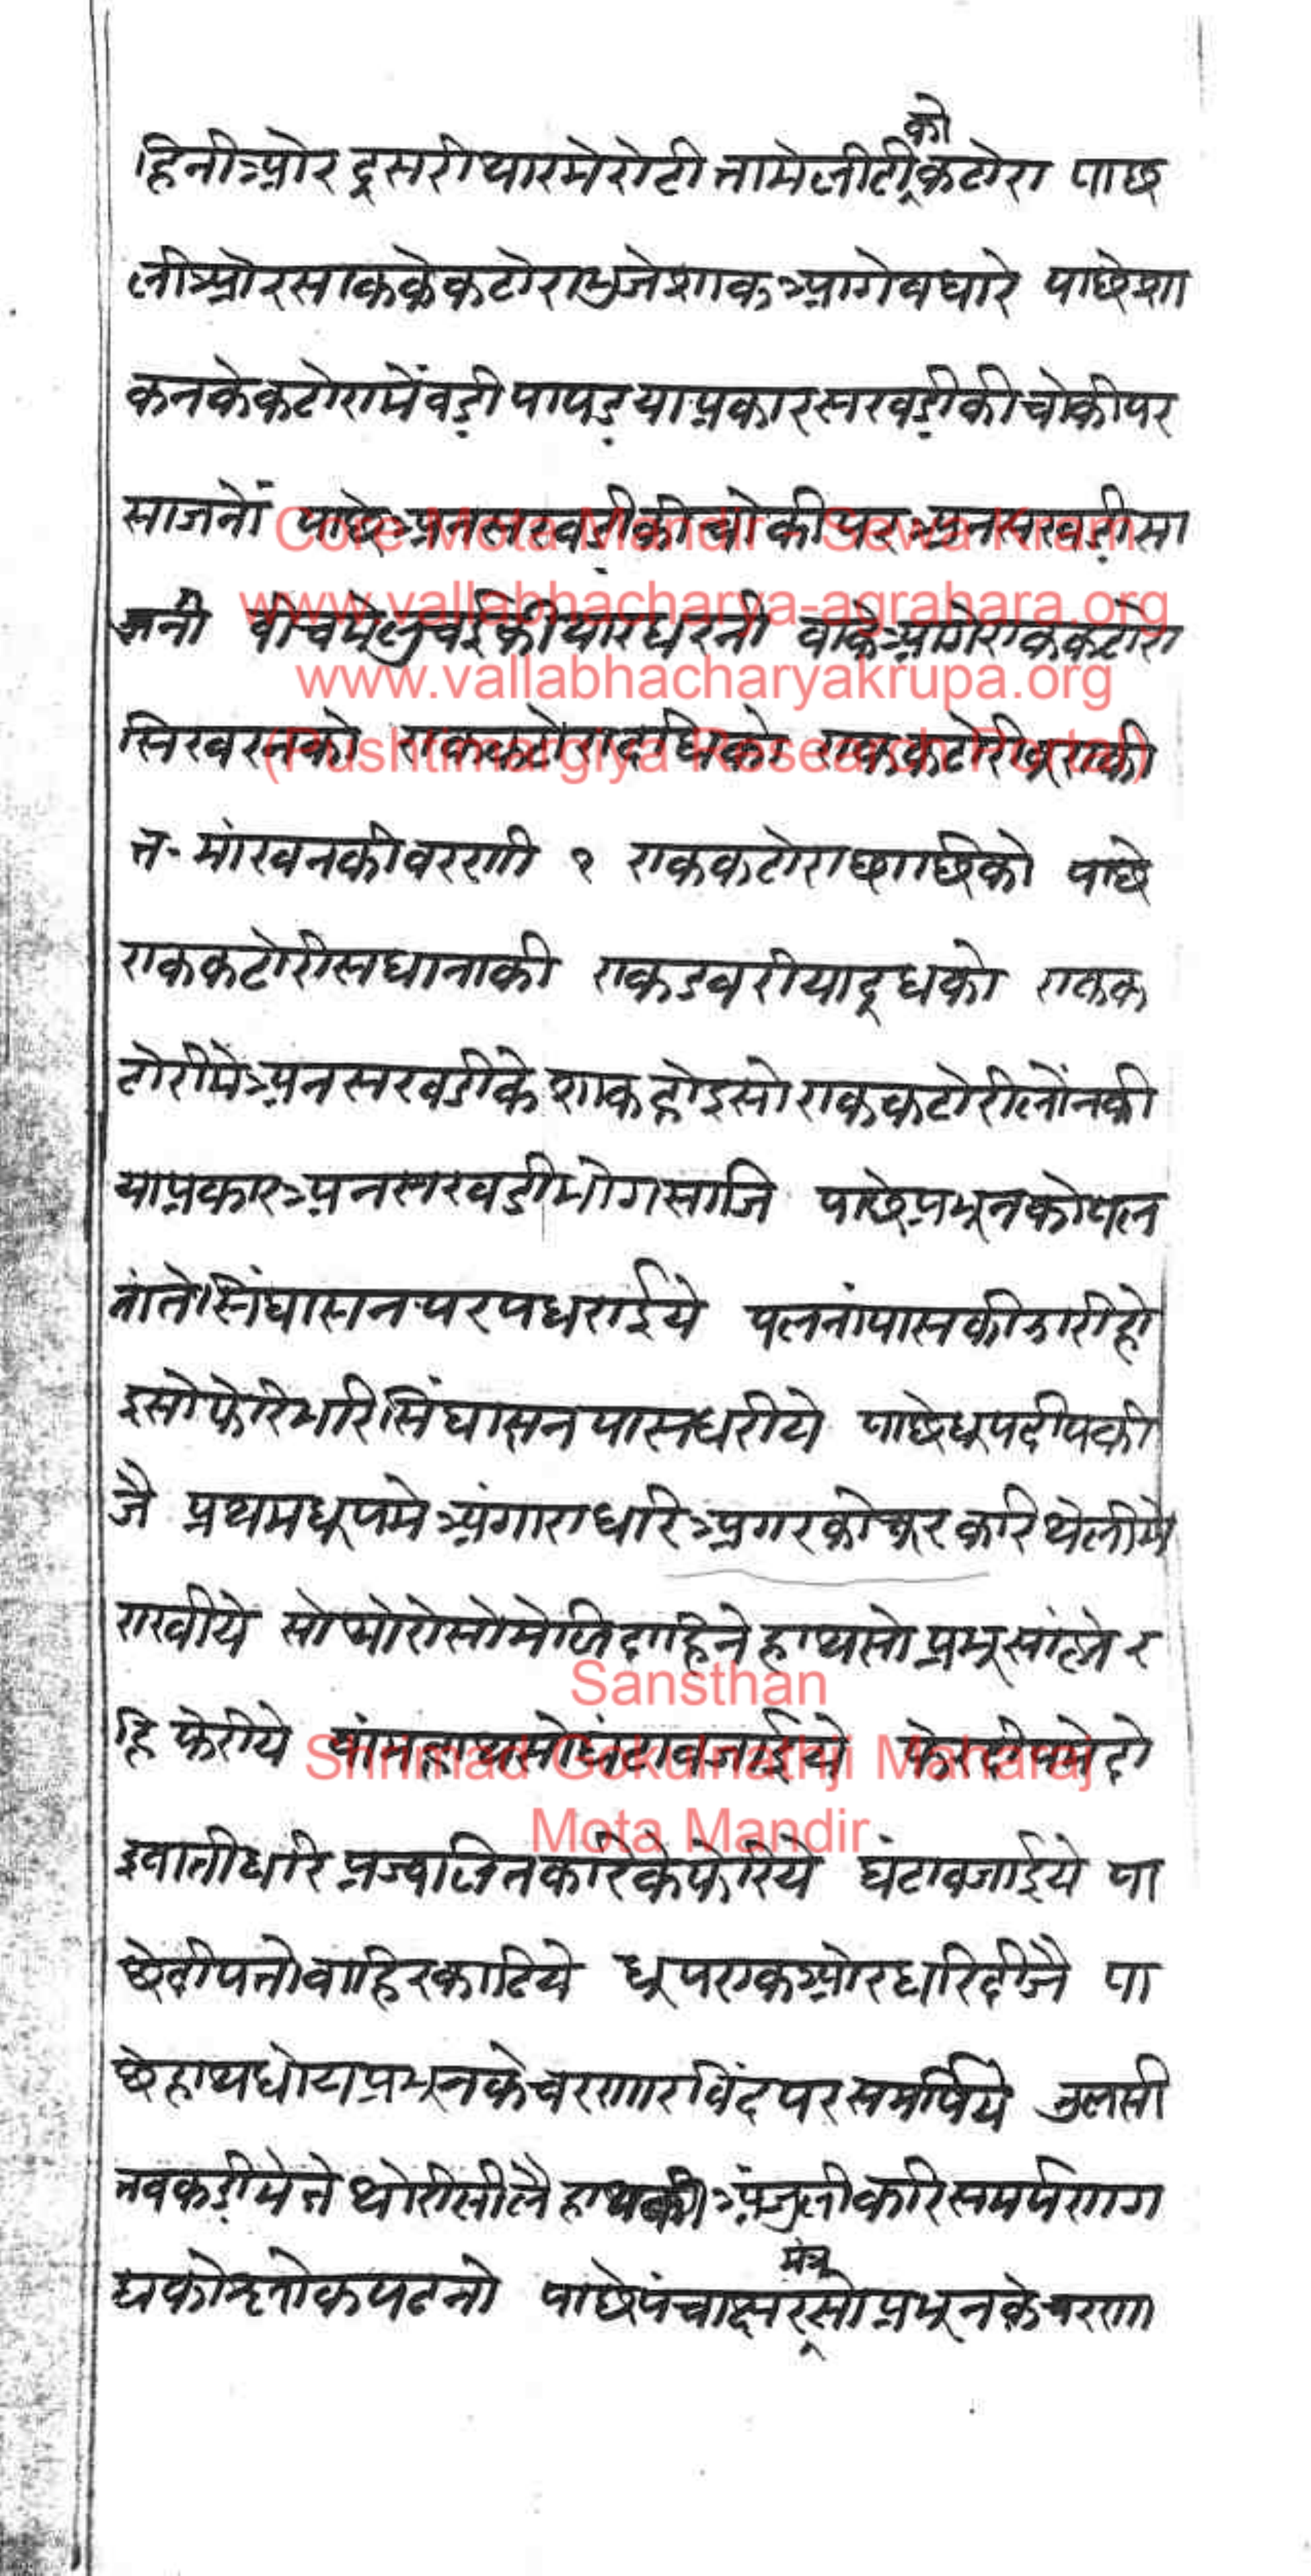 को
हिनी ओर दूसरी थारमे रोटी तामे लीटी कटोरा पाछ
ली ओर साकके कटोरा भुजेशाक आगे पधारे पाछे शा
कनके कटोरामें वडी पापड याप्रकार सखडीकी चोकीपर
साजनों पाछे अनसखडीकी चोकीपर अनसखडी सा
जनी वीचमे लुचईकी थार धरनी वाके आगे एक कटोरा
सिखरनको एक कटोरा दधिको एक कटोरी बूराकी
त- मांखनकी वरणी १ एक कटोरा छाछिको पाछे
एक कटोरी सधानाकी एक डवरीया दूधको एक क
टोरीमे अनसखडीके शाक होइ सो एक कटोरी लोंनकी
याप्रकार अनसखडी भोग साजि पाछे प्रभूनको पल
नांते सिंघासन पर पधराईये पलनांपासकी झारी हो
इ सो फेरि भरि सिंघासन पास धरीये पाछे धूप दीप की
जै प्रथम धूपमे अंगारा धरि अगरको चूर करि थेलीमे
राखीये सो थोरोसो मेलि दाहिने हाथसो प्रभू सांह्मे र
हि फेरीये वांम हाथसो घंटा वजाईये फेर दीपमे दो
इ वाती धरि प्रज्वलित करिके फेरिये घंटा वजाईये पा
छे दीपतो वाहिर काढिये धूप एक ओर धरि दीजै पा
छे हाथ धोय प्रभूनके चरणारविंद पर समर्पिये तुलसी
तवकडीमे ते थोरीसी लै हाथकी अंजुली करि समर्पण ग
मंत्र
द्यको श्लोक पढनो पाछे पंचाक्षरसो प्रभूनके चरण
Core Mota Mandir - Sewa Kram
www.vallabhacharya-agrahara.org
www.vallabhacharyakrupa.org
(Pushtimargiya Research Portal)
Sansthan
Shrimad Gokulnathji Maharaj
Mota Mandir